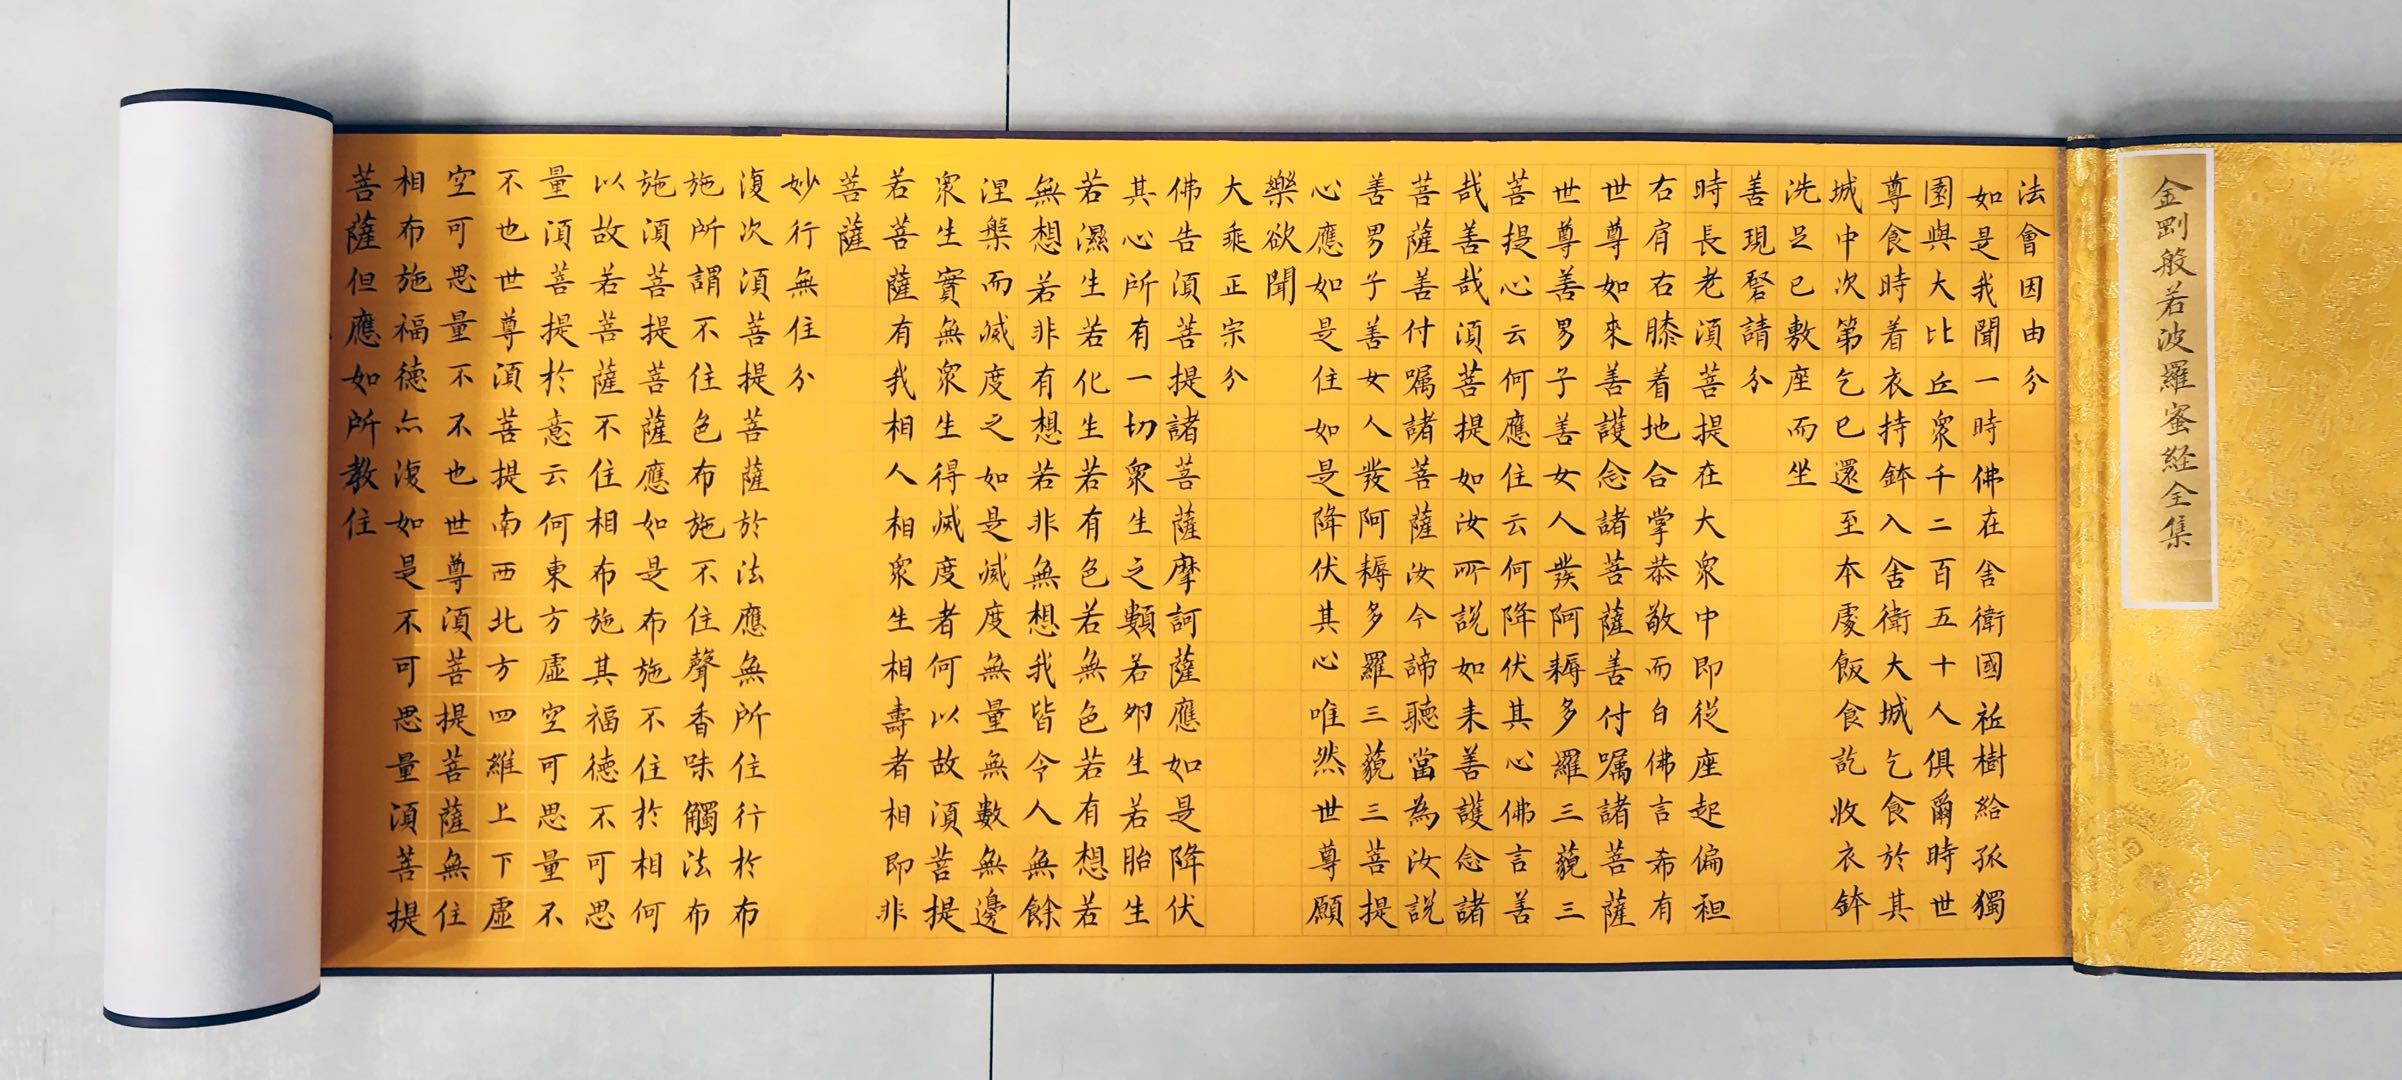 金剛般若波羅蜜経全集
法會因由分
如是我聞一時佛在舍衛國祇樹給孤獨
園與大比丘眾千二百五十人俱爾時世
尊食時着衣持鉢入舍衛大城乞食於其
城中次第乞已還至本處飯食訖收衣鉢
洗足已敷座而坐
善現啓請分
時長老須菩提在大眾中即從座起偏袒
右肩右膝着地合掌恭敬而白佛言希有
世尊如來善護念諸菩薩善付嘱諸菩薩
世尊善男子善女人發阿耨多羅三藐三
菩提心云何應住云何降伏其心佛言善
哉善哉須菩提如汝所說如来善護念諸
菩薩善付嘱諸菩薩汝今諦聽當為汝說
善男子善女人發阿耨多羅三藐三菩提
心應如是住如是降伏其心唯然世尊願
樂欲聞
大乘正宗分
佛告須菩提諸菩薩摩訶薩應如是降伏
其心所有一切眾生之類若卵生若胎生
若濕生若化生若有色若無色若有想若
無想若非有想若非無想我皆令人無餘
涅槃而滅度之如是滅度無量無數無邊
眾生實無眾生得滅度者何以故須菩提
若菩薩有我相人相眾生相壽者相即非
菩薩
妙行無住分
復次須菩提菩薩於法應無所住行於布
施所謂不住色布施不住聲香味觸法布
施須菩提菩薩應如是布施不住於相何
以故若菩薩不住相布施其福德不可思
量須菩提於意云何東方虛空可思量不
不也世尊須菩提南西北方四維上下虛
空可思量不不也世尊須菩提菩薩無住
相布施福德亦復如是不可思量須菩提
菩薩但應如所教住